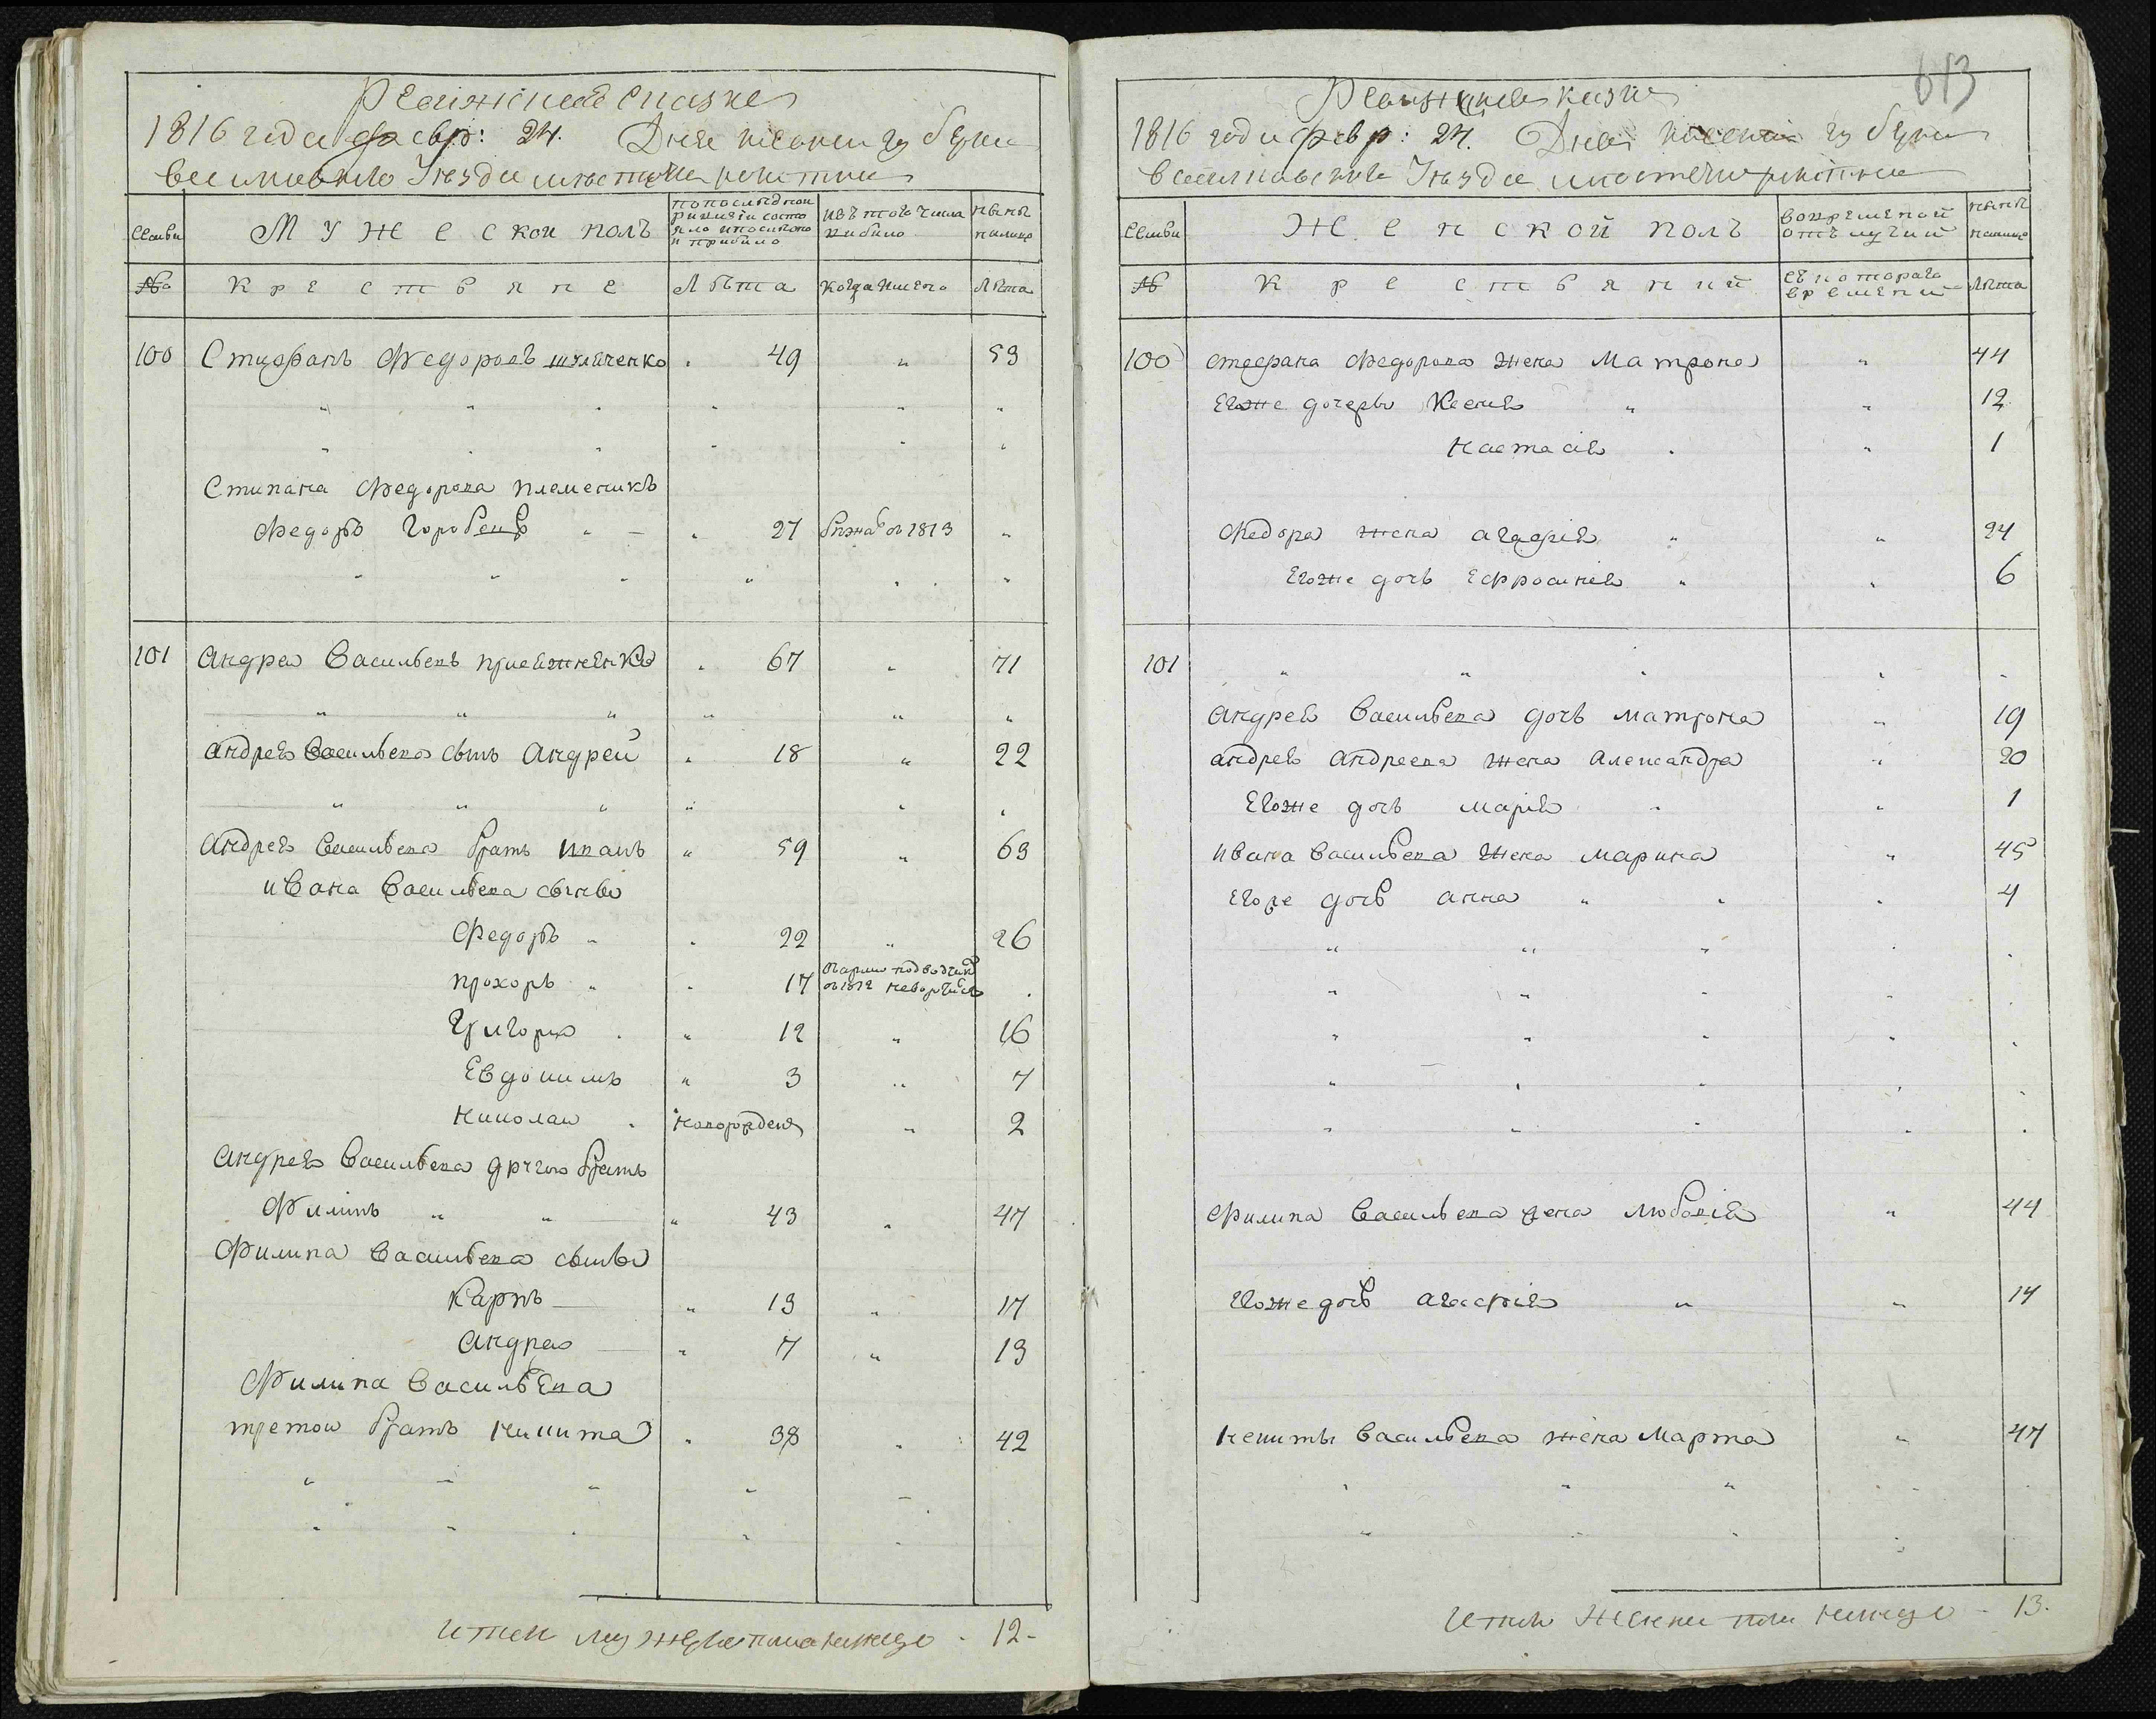 Ревижская сказка
1816 года февр: 24. Дня
Уезда местечка
Семьи
Мужескои полъ
по последнои ревизiи состояло и после того прибыло
изъ того числа выбыло
ныне налицо
№
Крестьяне
Лѣта
когда имено
Лѣта
100 Стифанъ Федоровъ . 49 " 53
Стипана Федорова племеникъ
Федоръ Горобецъ " - . 27 бѣжавъ въ 1813 "
101 Андрея Васильевъ . 67 " 71
Андрея Васильева сынъ Андрей . 18 " 22
Андрея Васильева братъ иванъ " 59 " 63
ивана Васильева сынъи
Федоръ " . 22 " 26
прохоръ " . 17 1812 .
Григори . " 12 " 16
Евдокимъ " 3 " 7
Николаи . новорожден " 2
Андрея Васильева другои братъ
Филипъ " " " 43 " 47
Филипа Васильева сынъи
Карпъ " 13 " 17
Андрей " 7 " 13
Филипа Васильева
третои братъ Никита . 38 . 42
итого мужеска пола налицо - 12 -
613
Ревижская сказка
1816 года февр: 24. Дня
Уезда местечка
Семьи
Женской полъ
во временной отълучки
ныне налицо
№
Крестьяний
съ котораго времени
Лѣта
100 Стефана Федорова жена Матрона " 44
Егоже дочеръи Ксения " " 12
Настасiя . " 1
Федора жена агафiя " " 24
Егоже дочь Ефросиния " " 6
101
Андрея Васильева дочь матрона " 19
андрея андреева жена александра " 20
Егоже дочь марiя " " 1
ивана васильева жена марина " 45
Егоже дочь анна " " . 4
Филипа Васильева жена " 44
Егоже дочь агафiя " " 14
Никиты васильева жена Марта " 47
Итого женска пола налицо - 13.